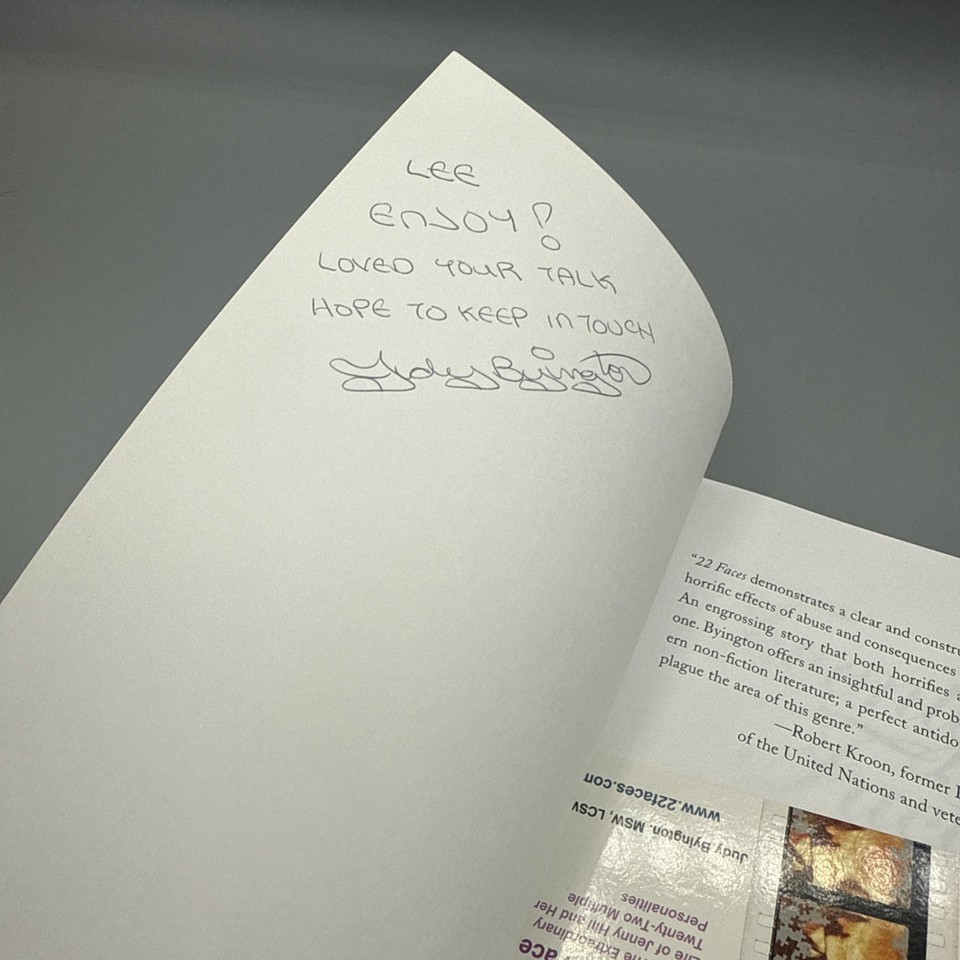 LEE
ENJOY!
LOVED YOUR TALK
HOPE TO KEEP IN TOUCH
Judy Byington
"22 Faces demonstrates a clear and constru
horrific effects of abuse and consequences
An engrossing story that both horrifies
one. Byington offers an insightful and prob
ern non-fiction literature; a perfect antido
plague the area of this genre."
—Robert Kroon, former
of the United Nations and vete
www.22faces.com
Judy Byington. MSW, LCSW
Personalities
Twenty-Two Multiple
Life of Jenny Hill and Her
The Extraordinary
ace